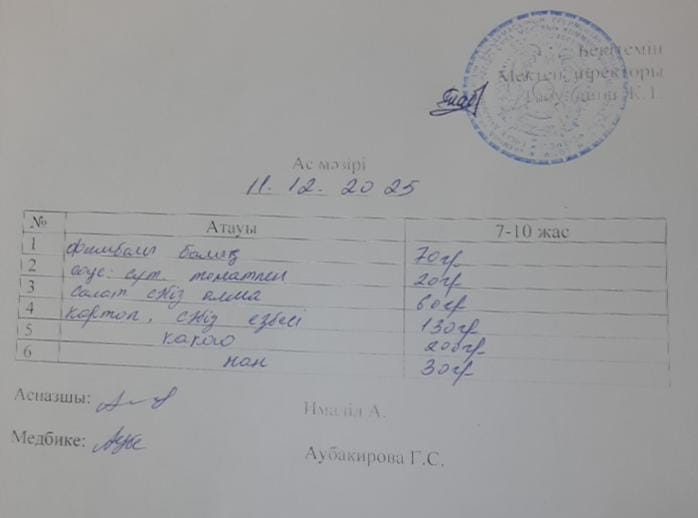 Бекітемін
Мектеп директоры
Ас мәзірі
11. 12. 2025
№ Атауы 7-10 жас
1 балық 70гр
2 соус: сүт томатпен 20гр
3 салат сәбіз алма 60гр
4 картоп, сәбіз езбесі 130гр
5 какао 200гр
6 нан 30гр
Асназшы: А.
Медбике: Аубакирова Г.С.